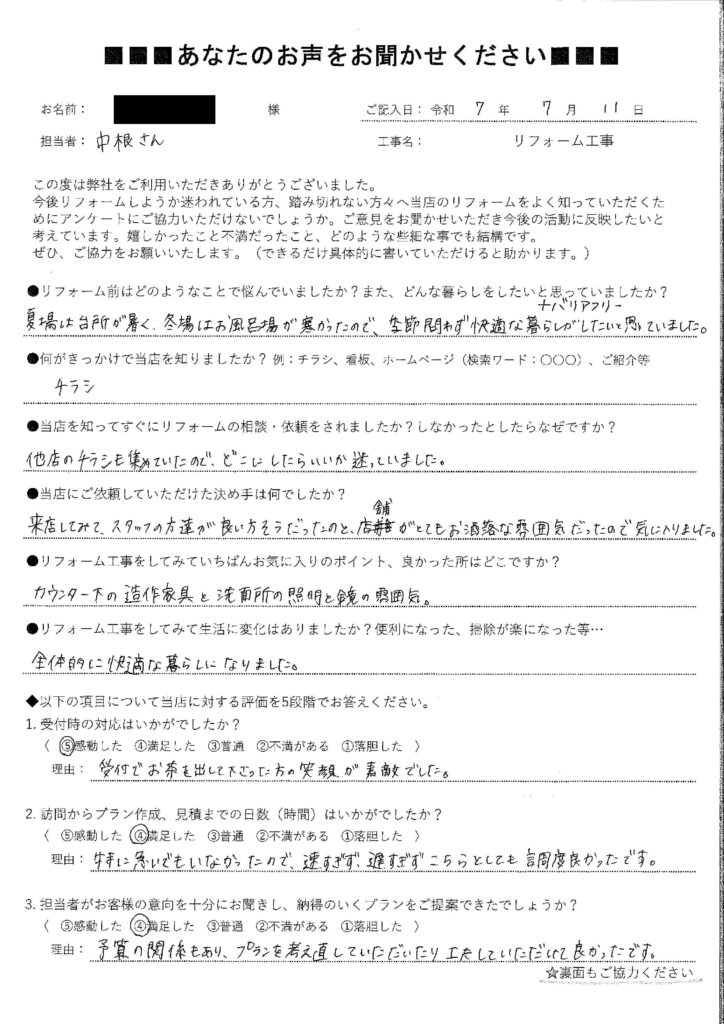 ■■■あなたのお声をお聞かせください■■■
お名前： 様 ご記入日：令和 7 年 7 月 11 日
担当者：中根さん 工事名： リフォーム工事
この度は弊社をご利用いただきありがとうございました。
今後リフォームしようか迷われている方、踏み切れない方々へ当店のリフォームをよく知っていただくた
めにアンケートにご協力いただけないでしょうか。ご意見をお聞かせいただき今後の活動に反映したいと
考えています。嬉しかったこと不満だったこと、どのような些細な事でも結構です。
ぜひ、ご協力をお願いいたします。（できるだけ具体的に書いていただけると助かります。）
●リフォーム前はどのようなことで悩んでいましたか？また、どんな暮らしをしたいと思っていましたか？
＋バリアフリー
夏場は台所が暑く、冬場はお風呂場が寒かったので、季節問わず快適な暮らしがしたいと思っていました。
●何がきっかけで当店を知りましたか？例：チラシ、看板、ホームページ（検索ワード：〇〇〇）、ご紹介等
チラシ
●当店を知ってすぐにリフォームの相談・依頼をされましたか？しなかったとしたらなぜですか？
他店のチラシも集めていたので、どこにしたらいいか迷っていました。
●当店にご依頼していただけた決め手は何でしたか？
来店してみて、スタッフの方達が良い方そうだったのと、店舗がとてもお洒落な雰囲気だったので気に入りました。
●リフォーム工事をしてみていちばんお気に入りのポイント、良かった所はどこですか？
カウンター下の造作家具と洗面所の照明と鏡の雰囲気。
●リフォーム工事をしてみて生活に変化はありましたか？便利になった、掃除が楽になった等…
全体的に快適な暮らしになりました。
◆以下の項目について当店に対する評価を5段階でお答えください。
1. 受付時の対応はいかがでしたか？
〈 ⑤感動した ④満足した ③普通 ②不満がある ①落胆した 〉
理由： 受付でお茶を出して下さった方の笑顔が素敵でした。
2. 訪問からプラン作成、見積までの日数（時間）はいかがでしたか？
〈 ⑤感動した ④満足した ③普通 ②不満がある ①落胆した 〉
理由： 特に急いでもいなかったので、速すぎず、遅すぎずこちらとしても調度良かったです。
3. 担当者がお客様の意向を十分にお聞きし、納得のいくプランをご提案できたでしょうか？
〈 ⑤感動した ④満足した ③普通 ②不満がある ①落胆した 〉
理由： 予算の関係もあり、プランを考え直していただいたり工夫していただいて良かったです。
☆裏面もご協力ください